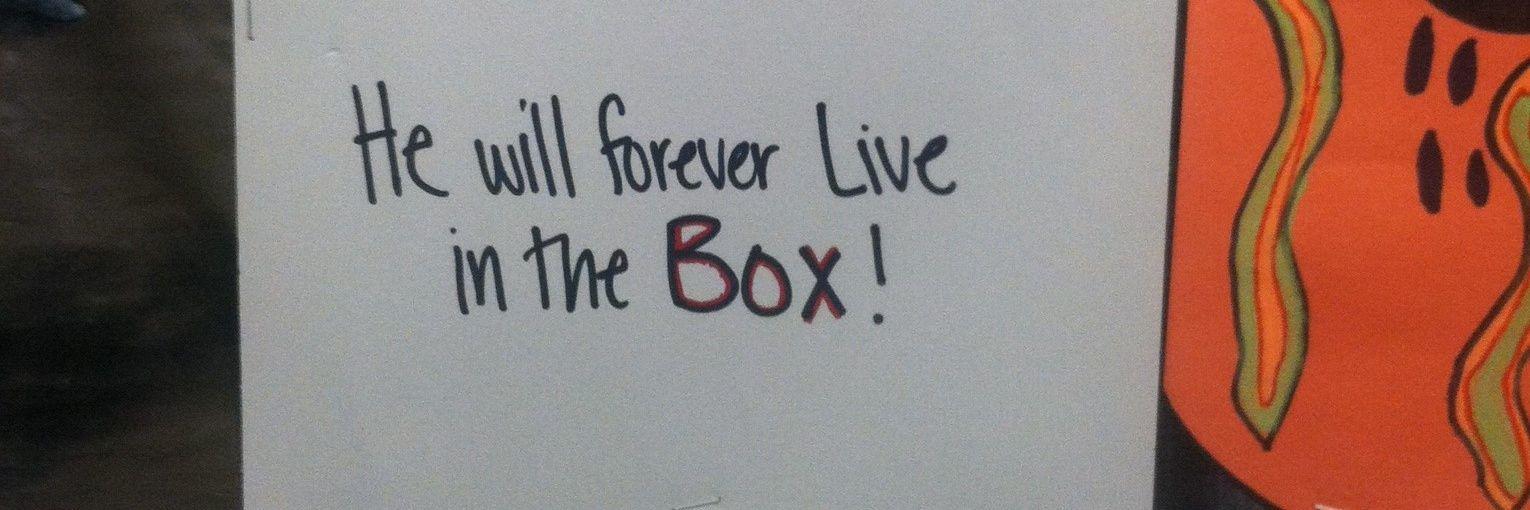 He will forever Live
in the Box!